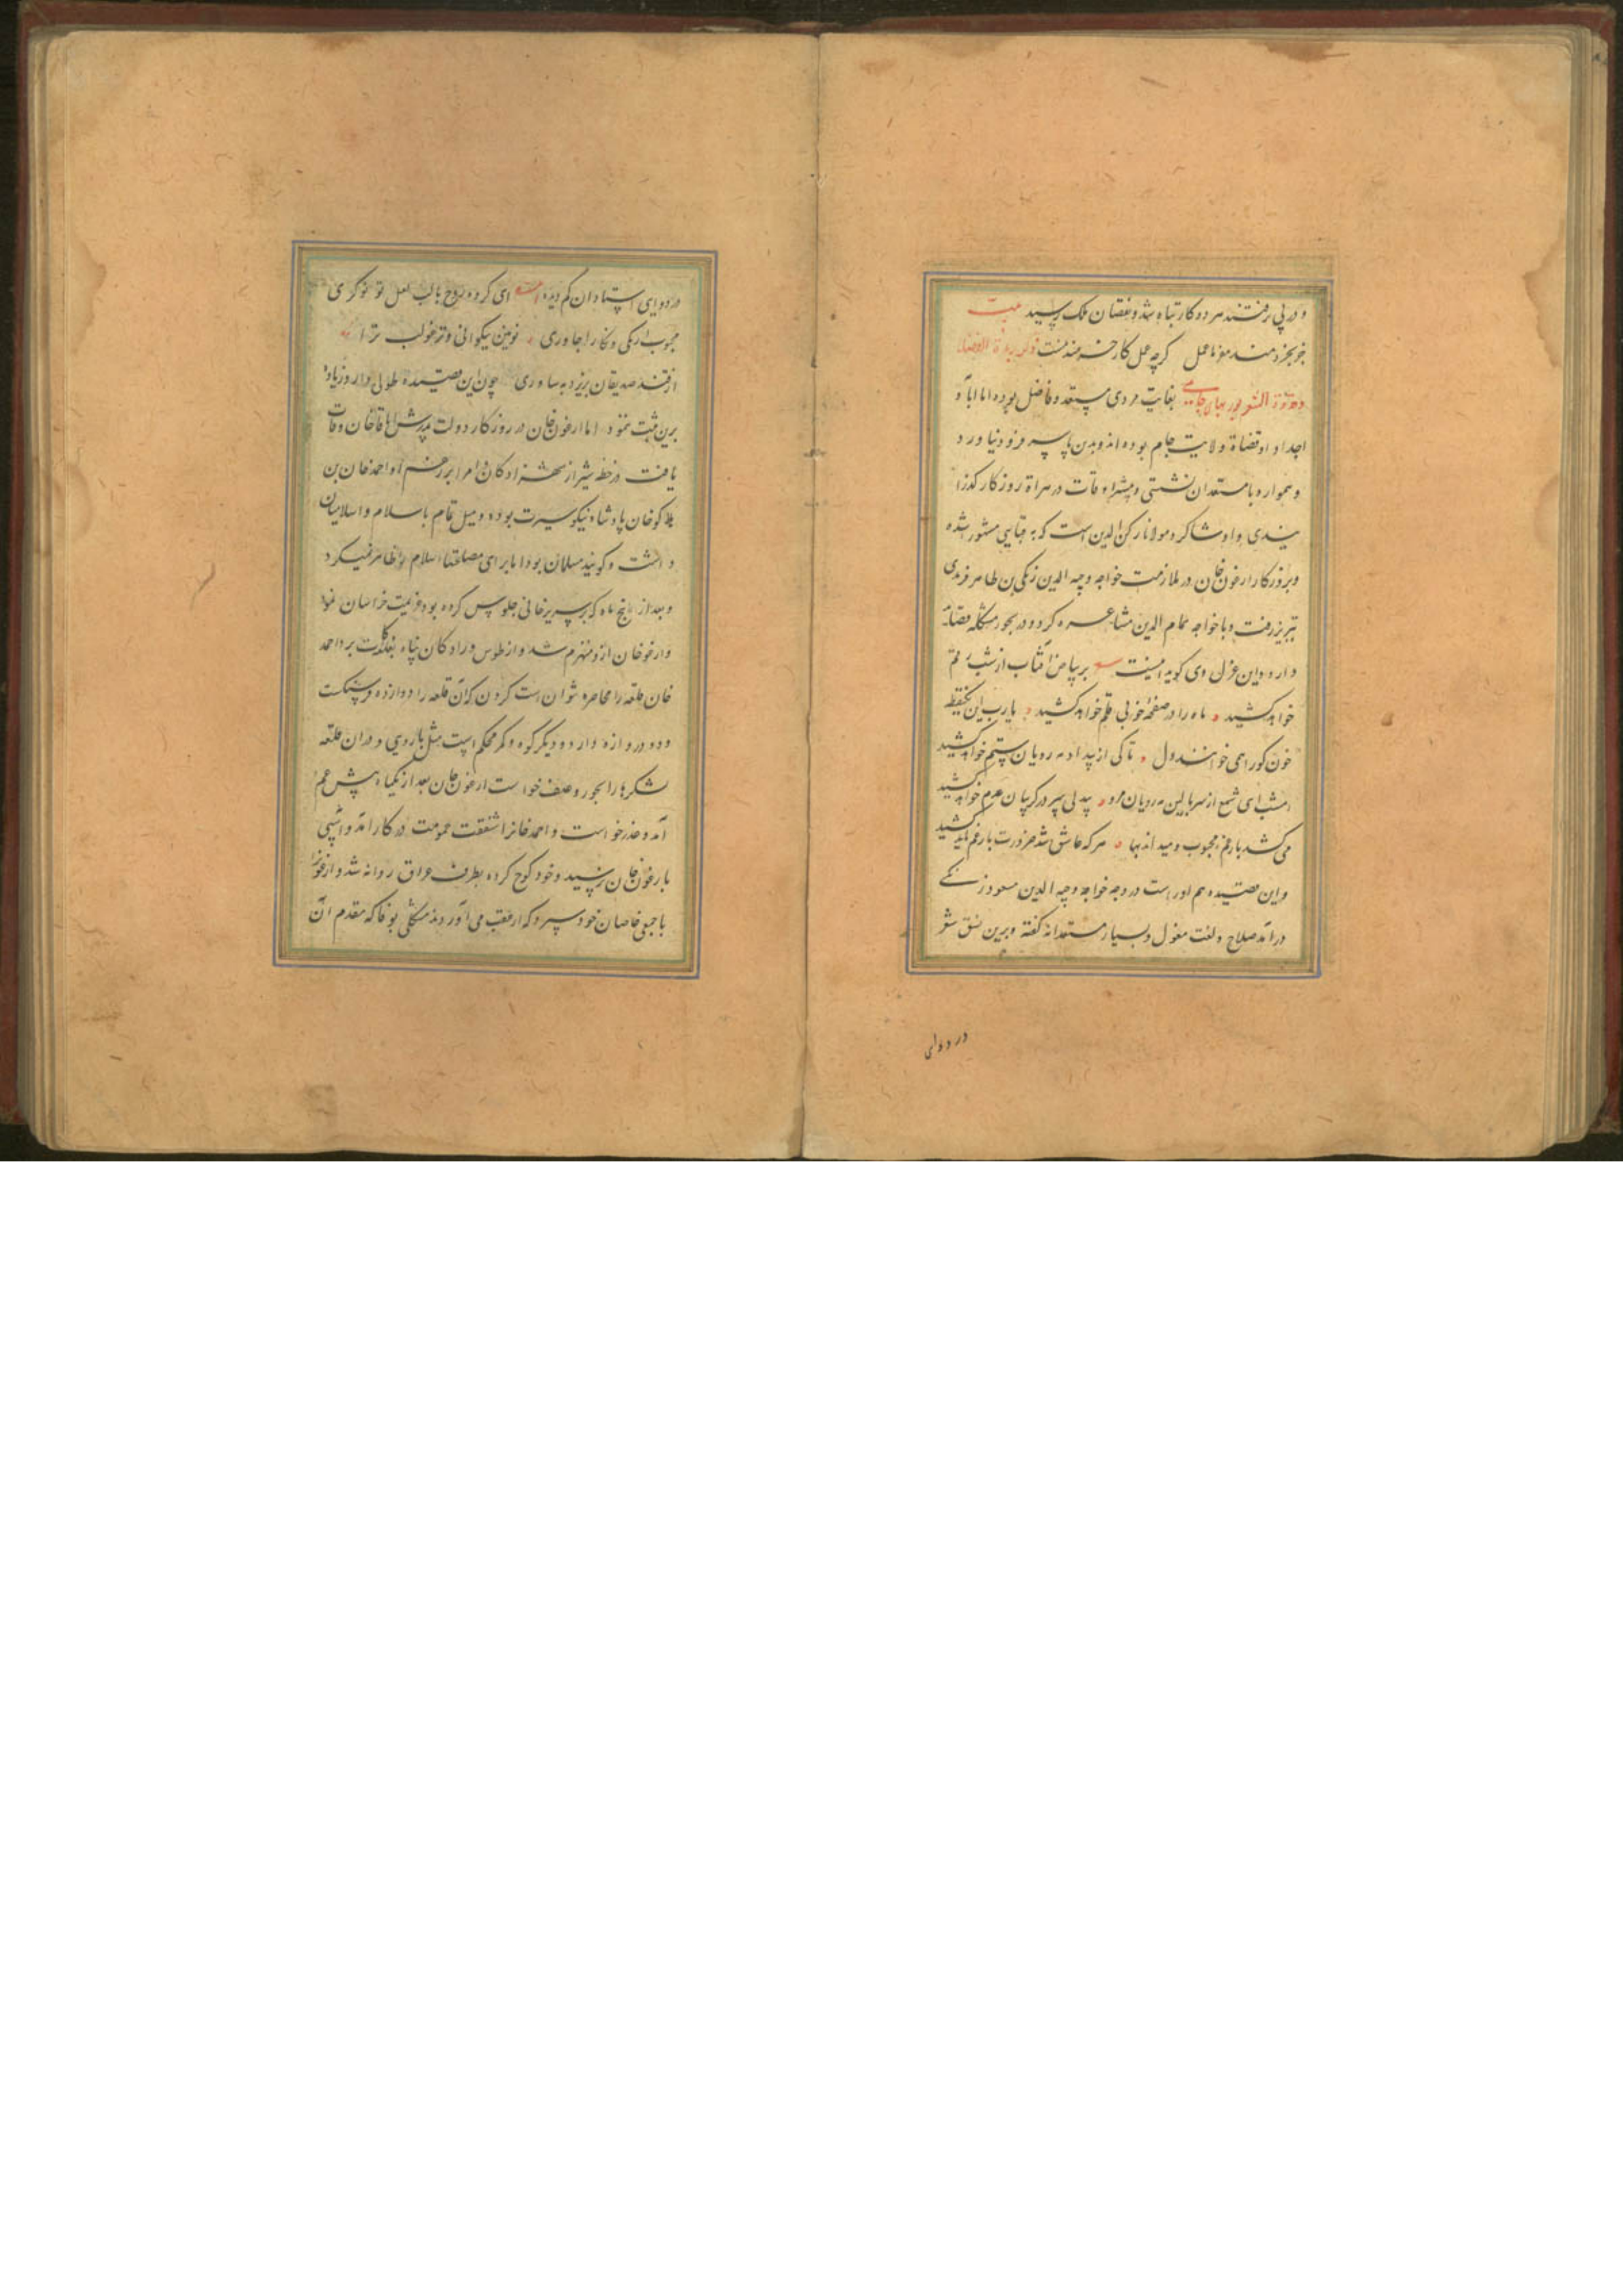 و در پی رفتند هر دو کار تباه شد و نقصان ملک رسید بیت
جز بخردمند مفرما عمل گرچه عمل کار خردمند نیست ذکر زبدة الفضلا
و قدوة الشعرا پور بهای جامی بغایت مردی مستعد و فاضل بوده اما ابا و
اجداد او قضاة ولایت جام بوده اند و بدین پایه سر فرو نیاورد
و همواره با مستعدان نشستی و بیشتر اوقات در هراة روزگار گذرا
نیدی و او شاکرد مولانا رکن الدین است که به قبایی مشهور شده
و بروزکار ارغون خان در ملازمت خواجه وجیه الدین زنکی بن طاهر فریدی
تبریز رفت و با خواجه همام الدین مشاعره کرد و در بحور مشکله قصاید
دارد و این غزل وی کوید اینست بر بیاض آفتاب از شب رقم
خواهد کشید ماه را در صفحه خوبی قلم خواهد کشید یارب این یکقطره
خون کو را همی خوانند دل تا کی از بیداد مه رویان ستم خواهد کشید
امشب ای شمع از سر بالین مه رویان مرو بیدلی سر در کریبان عدم خواهد کشید
می کشد بار غم محبوب و میداند بها هر که عاشق شد ضرورت بار غم باید کشید
و این قصیده هم اوراست در وجه خواجه وجیه الدین مسعود زنکی
در آمد صلاح و لغت مغول و بسیار مستعدانه کفته و برین نسق شعر
در دوای
در دوای استادان کم دیده ای کرده روح با لب لعل تو نوکری
محبوب ازبکی و نکار اجاوری نوین نیکوانی و ترغو لب ترا
از قند صدیقان بریزد به ساوری چون این قصیده طولی دارد زیاد
برین ثبت ننمود اما ارغون خان در روزکار دولت پدرش اباقاخان وفات
یافت در خطه شیراز شهزادکان و امرا بر رغم او احمد خان بن
هلاکو خان پادشاه نیکو سیرت بوده و میل تمام با سلام و اسلامیان
داشت و کویند مسلمان بود اما برای مصلحت اسلام را ظاهر نمیکرد
و بعد از پنج ماه که بر سریر خانی جلوس کرده بود عزیمت خراسان نمود
و ارغو خان ازو منهزم شد و از طوس و رادکان پناه بقلعه کلات برد احمد
خان قلعه را محاصره نتوان است کردن که آن قلعه را دوازده فرسنکست
و دو دروازه دارد و دیکر کوه و کمر محکم است مثل باروی و در آن قلعه
لشکرها را بجور و ضعف خواست ارغون خان بعد از یکماه پیش عم
آمد و عذر خواست و احمد خانرا شفقت عمومت در کار آمد و آسیبی
بارغون خان نرسید و خود کوچ کرده بطرف عراق روانه شد و ارغونرا
با جمعی خاصان خود سپرد که از عقب می آوردند مشکلی بوقا که مقدم آن